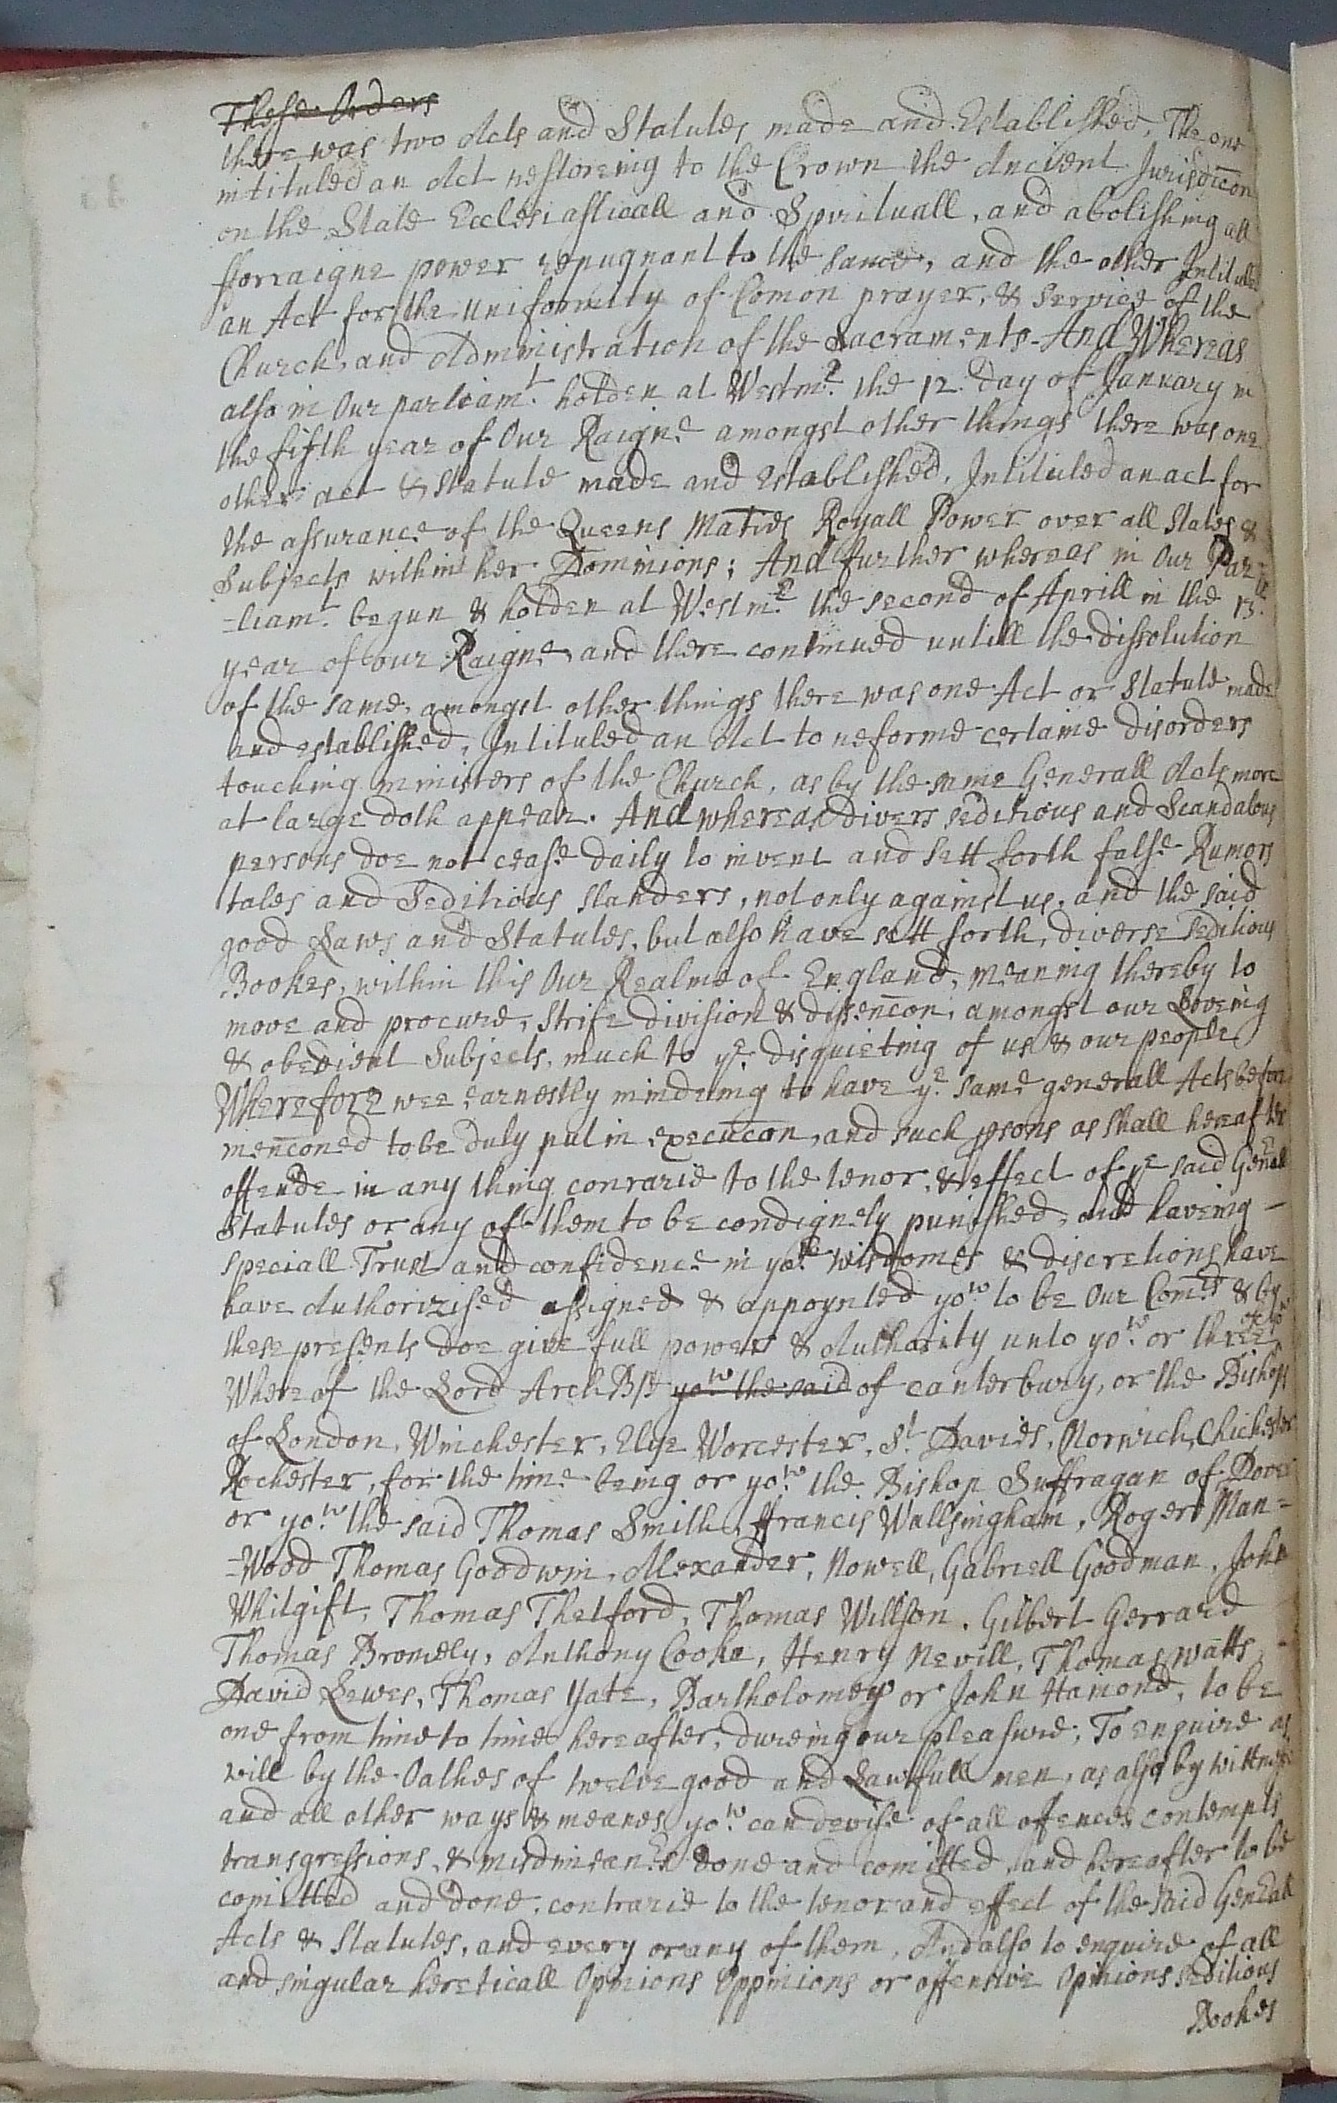 These Orders
there was two Acts and Statutes made and Established, The one
intituled an Act restoreing to the Crown the Ancient Jurisdicon
on the State Ecclesiasticall and Spirituall, and abolishing all
fforraigne power repugnant to the same, and the other Intituled
an Act for the uniformity of Comon prayer, & service of the
Church, and Administration of the Sacraments. And Whereas
also in Our parliamt. holden at Westmr. the 12 day of January in
the fifth year of Our Raigne amongst other things there was one
other act & Statute made and established, Intituled an act for
the assurance of the Queens Maties Royall Power over all States &
Subjects within her Dominions; And further whereas in Our Par=
-liamt. begun & holden at Westmr. the second of Aprill in the 13th.
year of our Raigne, and there continued untill the dissolution
of the same, amongst other things there was one Act or Statute made
and established, Intituled an Act to reforme certaine disorders
touching ministers of the Church, as by the same Generall Acts more
at large doth appear. And whereas divers seditious and Scandalous
persons doe not cease daily to invent and sett forth false Rumors
tales and Seditious slanders, not only against us, and the said
good Laws and Statutes, but also have sett forth, diverse seditious
Bookes, within this Our Realme of England, meaning thereby to
move and procure, strife division & dissencon, amongst our Loveing
& obedient Subjects, much to ye. disquieting of us & our people
Wherefore wee earnestly mindeing to have ye. same generall Acts before
menconed to be duly put in execucon, and such psons as shall hereafter
offende in any thing conrarie to the tenor, & effect of ye said Generall
Statutes or any of them to be condignely punished, and haveing -
speciall Trust and confidence in yor. wisdomes & discretions have
have Authorizised assigned & appoynted yow. to be Our Comrs & by
these presents doe give full power & Authority unto yow. or three of yow
Whereof the Lord ArchBp yow. the said of canterbury, or the Bishops
of London, Winchester, Elye Worcester, St. Davies, Norwich, Chichester
Rochester, for the time being or yow. the Bishop Suffragan of Dover
or yow. the said Thomas Smith, ffrancis Wallsingham, Roger Man=
-Wood Thomas Goodwin, Alexander, Nowell, Gabriell Goodman, John
Whitgift, Thomas Thetford, Thomas Willson, Gilbert Gerrard
Thomas Bromely, Anthony Cooke, Henry Nevill, Thomas Watts
David Lewes, Thomas Yate, Bartholomew or John Hamond, to be
one from time to time hereafter, dureing our pleasure; To enquire as
will by the Oathes of twelve good and Lawfull men, as also by wittnesse
and all other ways & meanes yow. can devise of all offences contempts
transgressions & misdmeanrs done and comitted, and hereafter to be
comitted and done, contrarie to the tenor and effect of the said Generall
Acts & Statutes, and every or any of them, And also to enquire of all
and singular hereticall Opinions Oppinions or offensive Opinions seditious
Bookes